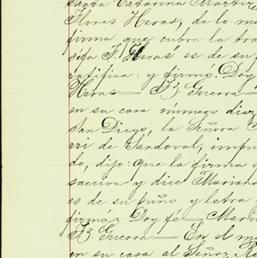 Santa Catarina Martínez
Flores Heras, de lo m
firma que cubre la tra
sefa F. Heras" es de su
ratifica: y firmó. Doy
Heras — J. B. Guerra —
en su casa número diez
San Diego, la Señora
rri de Sandoval, impu
do, dijo: que la firma q
saccion y dice Mariana
es de su puño y letra
firmó. Doy fe — Mar
J. B. Guerra — En el m
en su casa al Señor